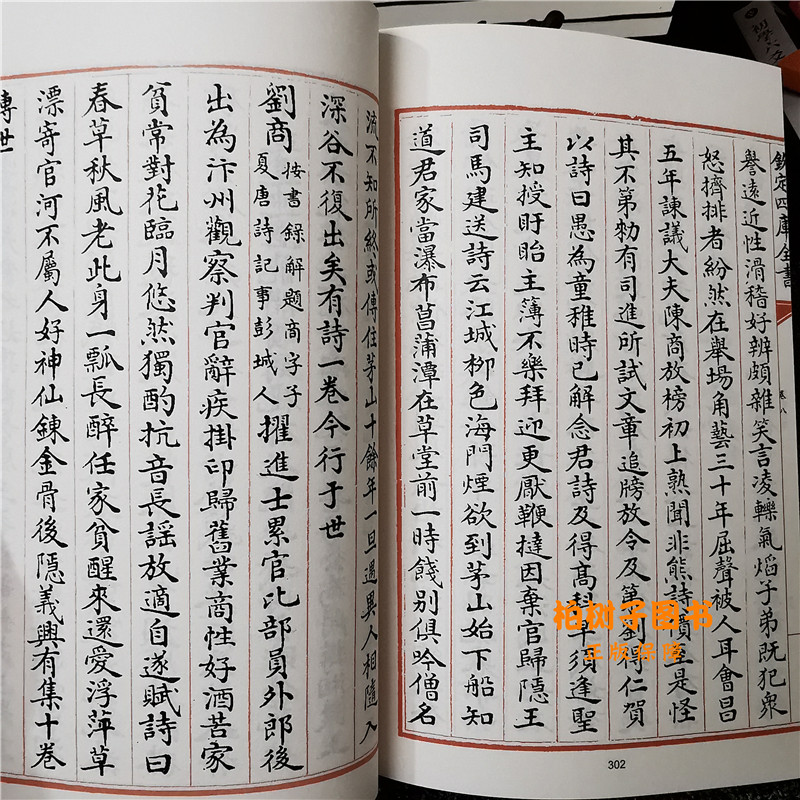 欽定四庫全書
卷八
譽遠近性滑稽好辨頗雜笑言凌轢氣焰子弟既犯衆
怒擠排者紛然在舉場角藝三十年屈聲被人耳會昌
五年諫議大夫陳商放榜初上熟聞非熊詩價至是怪
其不第勅有司進所試文章追牓放令及第劉得仁賀
以詩曰愚為童稚時已解念君詩及得髙科早須逢聖
主知授盱眙主簿不樂拜迎更厭鞭撻因棄官歸隱王
司馬建送詩云江城柳色海門煙欲到茅山始下船知
道君家當瀑布菖蒲潭在草堂前一時餞別俱吟僧名
302
流不知所終或傳住茅山十餘年一旦遇異人相隨入
深谷不復出矣有詩一卷今行于世
劉商 按書錄解題商字子夏唐詩記事彭城人 擢進士累官比部員外郎後
出為汴州觀察判官辭疾掛印歸舊業商性好酒苦家
貧常對花臨月悠然獨酌抗音長謠放適自遂賦詩曰
春草秋風老此身一瓢長醉任家貧醒來還愛浮萍草
漂寄官河不屬人好神仙鍊金骨後隱義興有集十卷
傳世
柏树子图书
正版保障